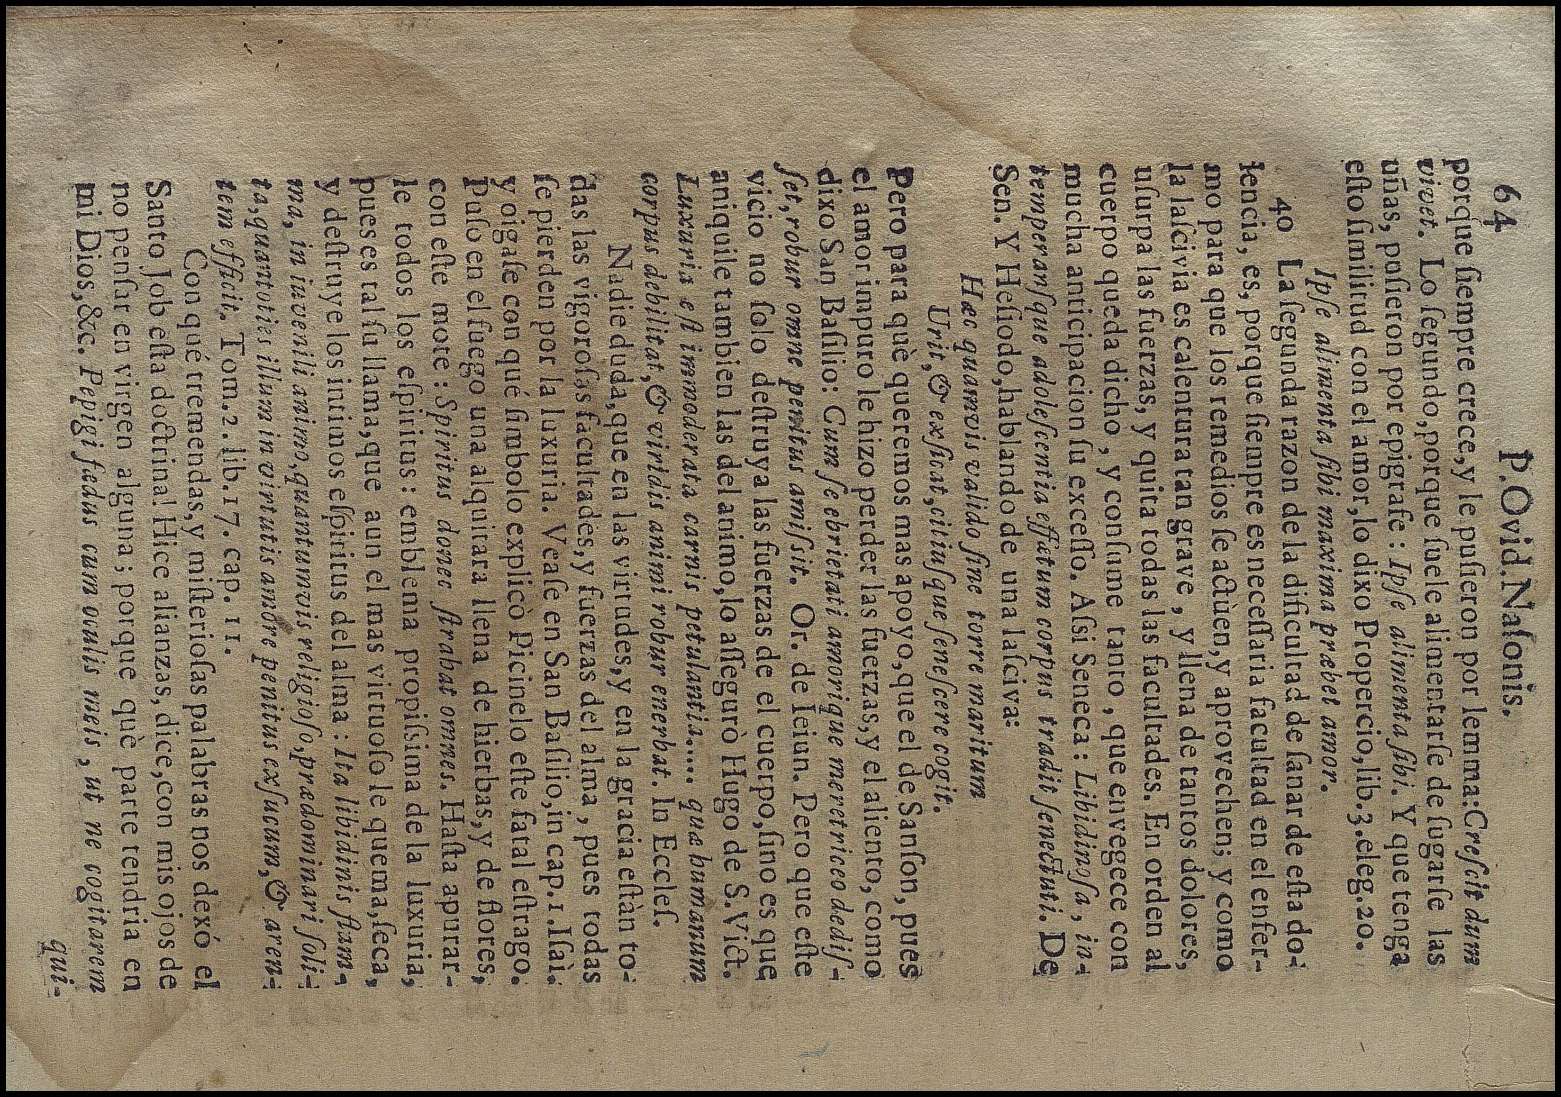 64 P. Ovid. Naſonis.
porque ſiempre crece, y le puſieron por lemma: Creſcit dum
vivet. Lo ſegundo, porque ſuele alimentarſe de ſugarſe las
uñas, puſieron por epigrafe: Ipſe alimenta ſibi. Y que tenga
eſto ſimilitud con el amor, lo dixo Propercio, lib. 3. eleg. 20.
Ipſe alimenta ſibi maxima præbet amor.
40 La ſegunda razon de la dificultad de ſanar de eſta do-
lencia, es, porque ſiempre es neceſſaria facultad en el enfer-
mo para que los remedios ſe actùen, y aprovechen; y como
la laſcivia es calentura tan grave, y llena de tantos dolores,
uſurpa las fuerzas, y quita todas las facultades. En orden al
cuerpo queda dicho, y conſume tanto, que envegece con
mucha anticipacion ſu exceſſo. Aſsi Seneca: Libidinoſa, in-
temperanſque adoleſcentia effætum corpus tradit ſenectuti. De
Sen. Y Heſiodo, hablando de una laſciva:
Hæc quamvis valido ſine torre maritum
Urit, & exſicat, citiuſque ſeneſcere cogit.
Pero para què queremos mas apoyo, que el de Sanſon, pues
el amor impuro le hizo perder las fuerzas, y el aliento, como
dixo San Baſilio: Cum ſe ebrietati amorique meretriceo dediſ-
ſet, robur omne penitus amiſsit. Or. de Ieiun. Pero que eſte
vicio no ſolo deſtruya las fuerzas de el cuerpo, ſino es que
aniquile tambien las del animo, lo aſſegurò Hugo de S. Vict.
Luxuria eſt immoderata carnis petulantia.... quæ humanum
corpus debilitat, & viridis animi robur enerbat. In Eccleſ.
Nadie duda, que en las virtudes, y en la gracia eſtàn to-
das las vigoroſas facultades, y fuerzas del alma, pues todas
ſe pierden por la luxuria. Veaſe en San Baſilio, in cap. 1. Iſaì.
y oigaſe con qué ſimbolo explicò Picinelo eſte fatal eſtrago.
Puſo en el fuego una alquitara llena de hierbas, y de flores,
con eſte mote: Spiritus donec ſtrabat omnes. Haſta apurar-
le todos los eſpiritus: emblema propiſsima de la luxuria,
pues es tal ſu llama, que aun el mas virtuoſo le quema, ſeca,
y deſtruye los intimos eſpiritus del alma: Ita libidinis flam-
ma, in iuvenili animo, quantumvis religioſo, prædominari ſoli-
ta, quantoties illum in virtutis amore penitus exſucum, & aren-
tem efficit. Tom. 2. lib. 17. cap. 11.
Con qué tremendas, y miſterioſas palabras nos dexó el
Santo Job eſta doctrina! Hice alianzas, dice, con mis ojos de
no penſar en virgen alguna; porque què parte tendria en
mi Dios, &c. Pepigi fœdus cum oculis meis, ut ne cogitarem
qui-